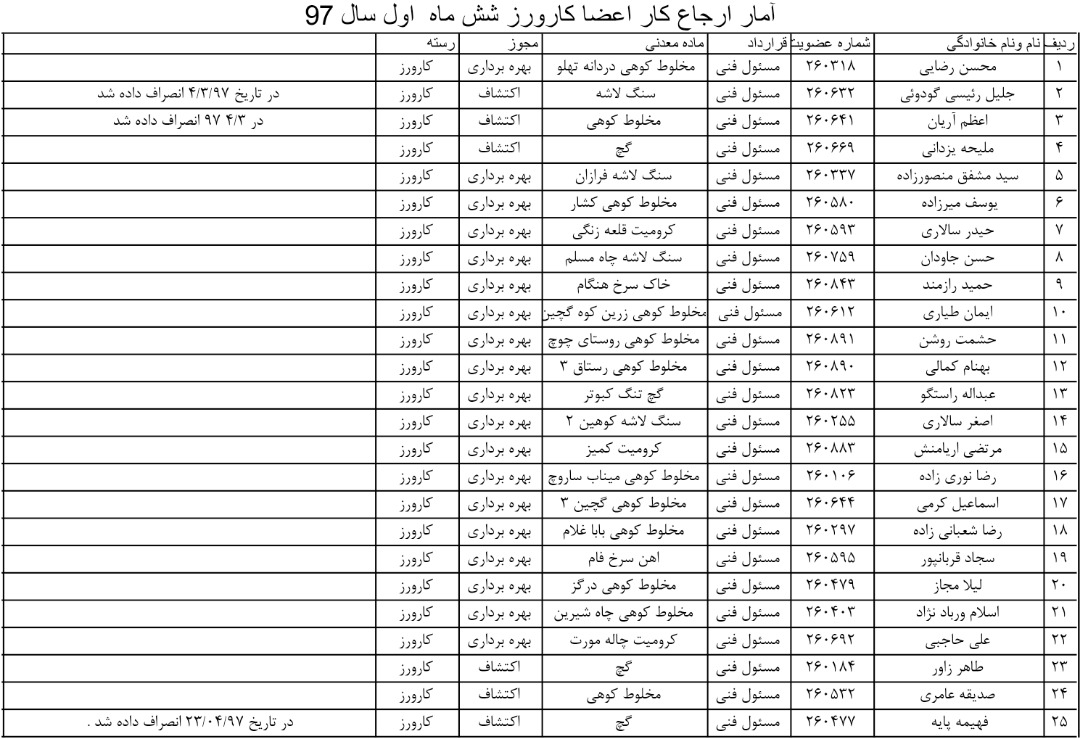 آمار ارجاع کار اعضا کارورز شش ماه اول سال 97
ردیف نام ونام خانوادگی شماره عضویت قرارداد ماده معدنی مجوز رسته
۱ محسن رضایی ۲۶۰۳۱۸ مسئول فنی مخلوط کوهی دردانه تهلو بهره برداری کارورز
۲ جلیل رئیسی گودوئی ۲۶۰۶۳۲ مسئول فنی سنگ لاشه اکتشاف کارورز در تاریخ ۴/۳/۹۷ انصراف داده شد
۳ اعظم آریان ۲۶۰۶۴۱ مسئول فنی مخلوط کوهی اکتشاف کارورز در ۴/۳ ۹۷ انصراف داده شد
۴ ملیحه یزدانی ۲۶۰۶۶۹ مسئول فنی گچ اکتشاف کارورز
۵ سید مشفق منصورزاده ۲۶۰۳۳۷ مسئول فنی سنگ لاشه فرازان بهره برداری کارورز
۶ یوسف میرزاده ۲۶۰۵۸۰ مسئول فنی مخلوط کوهی کشار بهره برداری کارورز
۷ حیدر سالاری ۲۶۰۵۹۳ مسئول فنی کرومیت قلعه زنگی بهره برداری کارورز
۸ حسن جاودان ۲۶۰۷۵۹ مسئول فنی سنگ لاشه چاه مسلم بهره برداری کارورز
۹ حمید رازمند ۲۶۰۸۴۳ مسئول فنی خاک سرخ هنگام بهره برداری کارورز
۱۰ ایمان طیاری ۲۶۰۶۱۲ مسئول فنی مخلوط کوهی زرین کوه گچین بهره برداری کارورز
۱۱ حشمت روشن ۲۶۰۸۹۱ مسئول فنی مخلوط کوهی روستای چوچ بهره برداری کارورز
۱۲ بهنام کمالی ۲۶۰۸۹۰ مسئول فنی مخلوط کوهی رستاق ۳ بهره برداری کارورز
۱۳ عبداله راستگو ۲۶۰۸۲۳ مسئول فنی گچ تنگ کبوتر بهره برداری کارورز
۱۴ اصغر سالاری ۲۶۰۲۵۵ مسئول فنی سنگ لاشه کوهین ۲ بهره برداری کارورز
۱۵ مرتضی اریامنش ۲۶۰۸۸۳ مسئول فنی کرومیت کمیز بهره برداری کارورز
۱۶ رضا نوری زاده ۲۶۰۱۰۶ مسئول فنی مخلوط کوهی میناب ساروچ بهره برداری کارورز
۱۷ اسماعیل کرمی ۲۶۰۶۴۴ مسئول فنی مخلوط کوهی گچین ۳ بهره برداری کارورز
۱۸ رضا شعبانی زاده ۲۶۰۲۹۷ مسئول فنی مخلوط کوهی بابا غلام بهره برداری کارورز
۱۹ سجاد قربانپور ۲۶۰۵۹۵ مسئول فنی اهن سرخ فام بهره برداری کارورز
۲۰ لیلا مجاز ۲۶۰۴۷۹ مسئول فنی مخلوط کوهی درگز بهره برداری کارورز
۲۱ اسلام ورباد نژاد ۲۶۰۴۰۳ مسئول فنی مخلوط کوهی چاه شیرین بهره برداری کارورز
۲۲ علی حاجبی ۲۶۰۶۹۲ مسئول فنی کرومیت چاله مورت بهره برداری کارورز
۲۳ طاهر زاور ۲۶۰۱۸۴ مسئول فنی گچ اکتشاف کارورز
۲۴ صدیقه عامری ۲۶۰۵۳۲ مسئول فنی مخلوط کوهی اکتشاف کارورز
۲۵ فهیمه پایه ۲۶۰۴۷۷ مسئول فنی گچ اکتشاف کارورز در تاریخ ۲۳/۰۴/۹۷ انصراف داده شد .